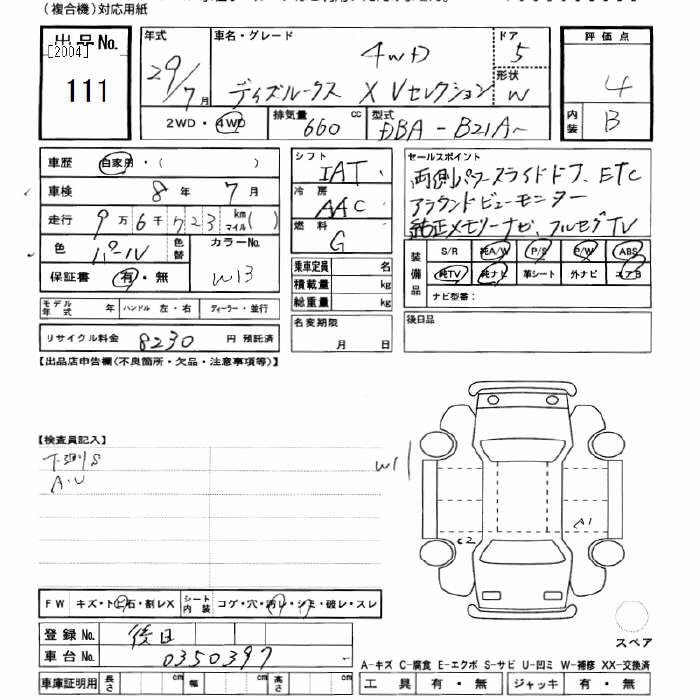 (複合機)対応用紙
出品No.
[2004]
111
年式
29/7月
車名・グレード
4WD
デイズルークス X Vセレクション
ドア
5
形状
W
評価点
4
内装
B
2WD・4WD
排気量
660cc
型式
DBA-B21A
車歴 自家用・( )
車検 8年 7月
走行 9万6千723 km マイル( )
色 パール 色替
カラーNo.
W13
保証書 有・無
モデル年式 年 ハンドル 左・右 ディーラー・並行
リサイクル料金 8230 円 預託済
シフト
IAT
冷房
AAC
燃料
G
乗車定員 名
積載量 kg
総重量 kg
名変期限
月 日
セールスポイント
両側パワースライドドア、ETC
アラウンドビューモニター
純正メモリーナビ、フルセグTV
装備品
S/R 純A/W P/S P/W ABS
純TV 純ナビ 革シート 外ナビ エアB
ナビ型番:
後日品
【出品店申告欄(不良箇所・欠品・注意事項等)】
【検査員記入】
下廻りS
A・U
W1
A1
C2
FW キズ・トビ石・割レX シート内装 コゲ・穴・汚レ・シミ・破レ・スレ
登録No. 後日
車台No. 0350397
車庫証明用 長さ cm 幅 cm 高さ cm
スペア
A-キズ C-腐食 E-エクボ S-サビ U-凹ミ W-補修 XX-交換済
工具 有・無 ジャッキ 有・無